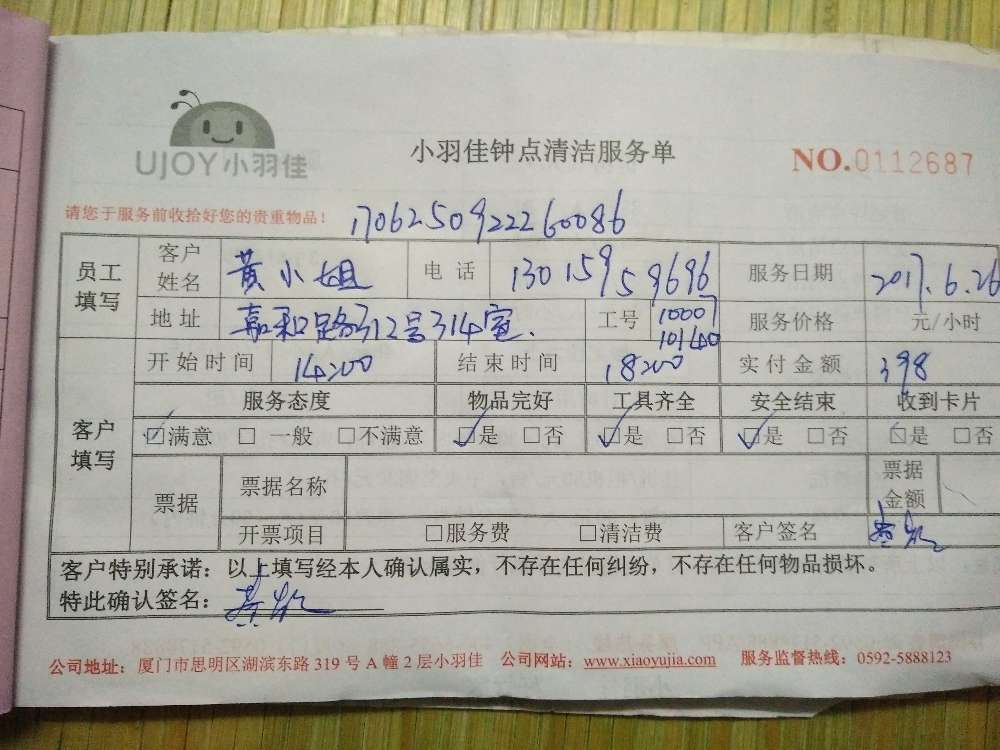 UJOY小羽佳
小羽佳钟点清洁服务单
NO.0112687
请您于服务前收拾好您的贵重物品！
170625092226 0086
员工填写 客户姓名 黄小姐 电话 13015959696 服务日期 2017.6.26
地址 嘉和路312号314室. 工号 10007 10140 服务价格 元/小时
客户填写 开始时间 14:00 结束时间 18:00 实付金额 398
服务态度 物品完好 工具齐全 安全结束 收到卡片
☑满意 □一般 □不满意 ☑是 □否 ☑是 □否 ☑是 □否 ☑是 □否
票据 票据名称 票据金额
开票项目 □服务费 □清洁费 客户签名
客户特别承诺：以上填写经本人确认属实，不存在任何纠纷，不存在任何物品损坏。
特此确认签名：
公司地址：厦门市思明区湖滨东路319号A幢2层小羽佳 公司网站：www.xiaoyujia.com 服务监督热线：0592-5888123